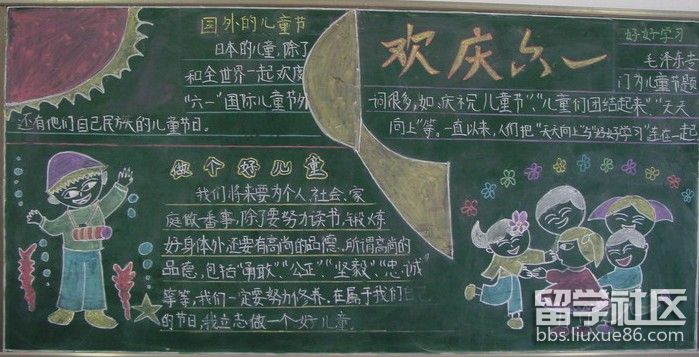 国外的儿童节
日本的儿童,除了
和全世界一起欢度
"六一"国际儿童节外
还有他们自己民族的儿童节日。
欢庆六一
好好学习
毛泽东专
门为儿童节题
词很多,如,庆祝儿童节","儿童们团结起来","天天
向上"等。一直以来,人们把"天天向上"与"好好学习"连在一起
做个好儿童
我们将来要为个人、社会、家
庭做番事,除了要努力读书,锻炼
好身体外,还要有高尚的品德,所谓高尚的
品德,包括"勇敢""公正""坚毅""忠诚
等等,我们一定要努力修养,在属于我们自
的节日,我立志做一个好儿童。
留学社区
bbs.liuxue86.com